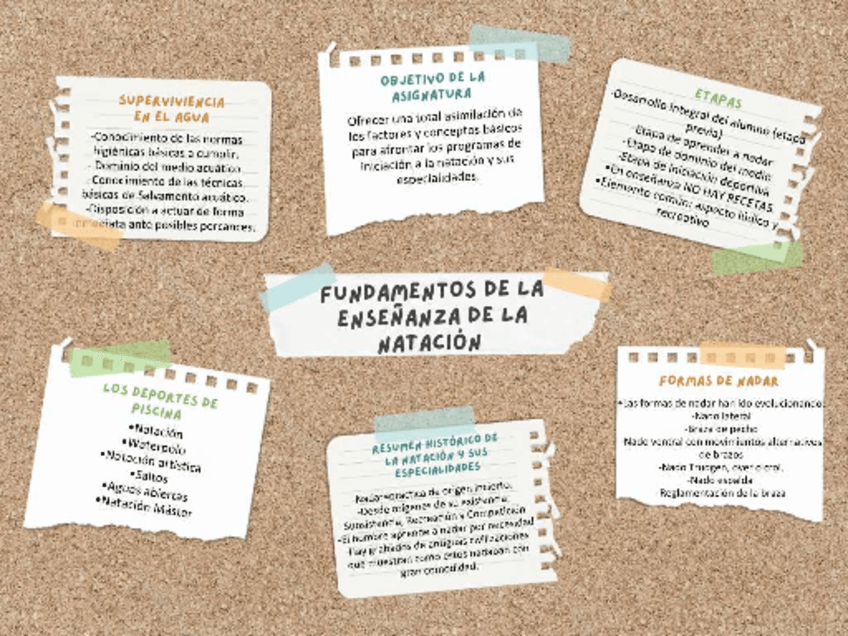 SUPERVIVIENCIA
EN EL AGUA
-Conocimiento de las normas
higiénicas básicas a cumplir.
- Dominio del medio acuático.
- Conocimiento de las técnicas
básicas de Salvamento acuático.
-Disposición a actuar de forma
inmediata ante posibles percances.
OBJETIVO DE LA
ASIGNATURA
Ofrecer una total asimilación de
los factores y conceptos básicos
para afrontar los programas de
iniciación a la natación y sus
especialidades.
ETAPAS
-Desarrollo integral del alumno (etapa
previa)
-Etapa de aprender a nadar
-Etapa de dominio del medio
-Etapa de iniciación deportiva
•En enseñanza NO HAY RECETAS.
•Elemento común: aspecto lúdico y
recreativo
FUNDAMENTOS DE LA
ENSEÑANZA DE LA
NATACIÓN
LOS DEPORTES DE
PISCINA
•Natación
•Waterpolo
•Natación artística
•Saltos
•Aguas abiertas
•Natación Máster
RESUMEN HISTÓRICO DE
LA NATACIÓN Y SUS
ESPECIALIDADES
Nadar=práctica de origen incierto.
-Desde orígenes de su existencia:
Subsistencia, Recreación y Competición
-El hombre aprende a nadar por necesidad
-Hay grabados de antiguas civilizaciones
que muestran como estos nadaban con
gran comodidad.
FORMAS DE NADAR
•Las formas de nadar han ido evolucionando:
-Nado lateral
-Braza de pecho
Nado ventral con movimientos alternativos
de brazos
-Nado Trudgen, over o crol.
-Nado espalda
Reglamentación de la braza